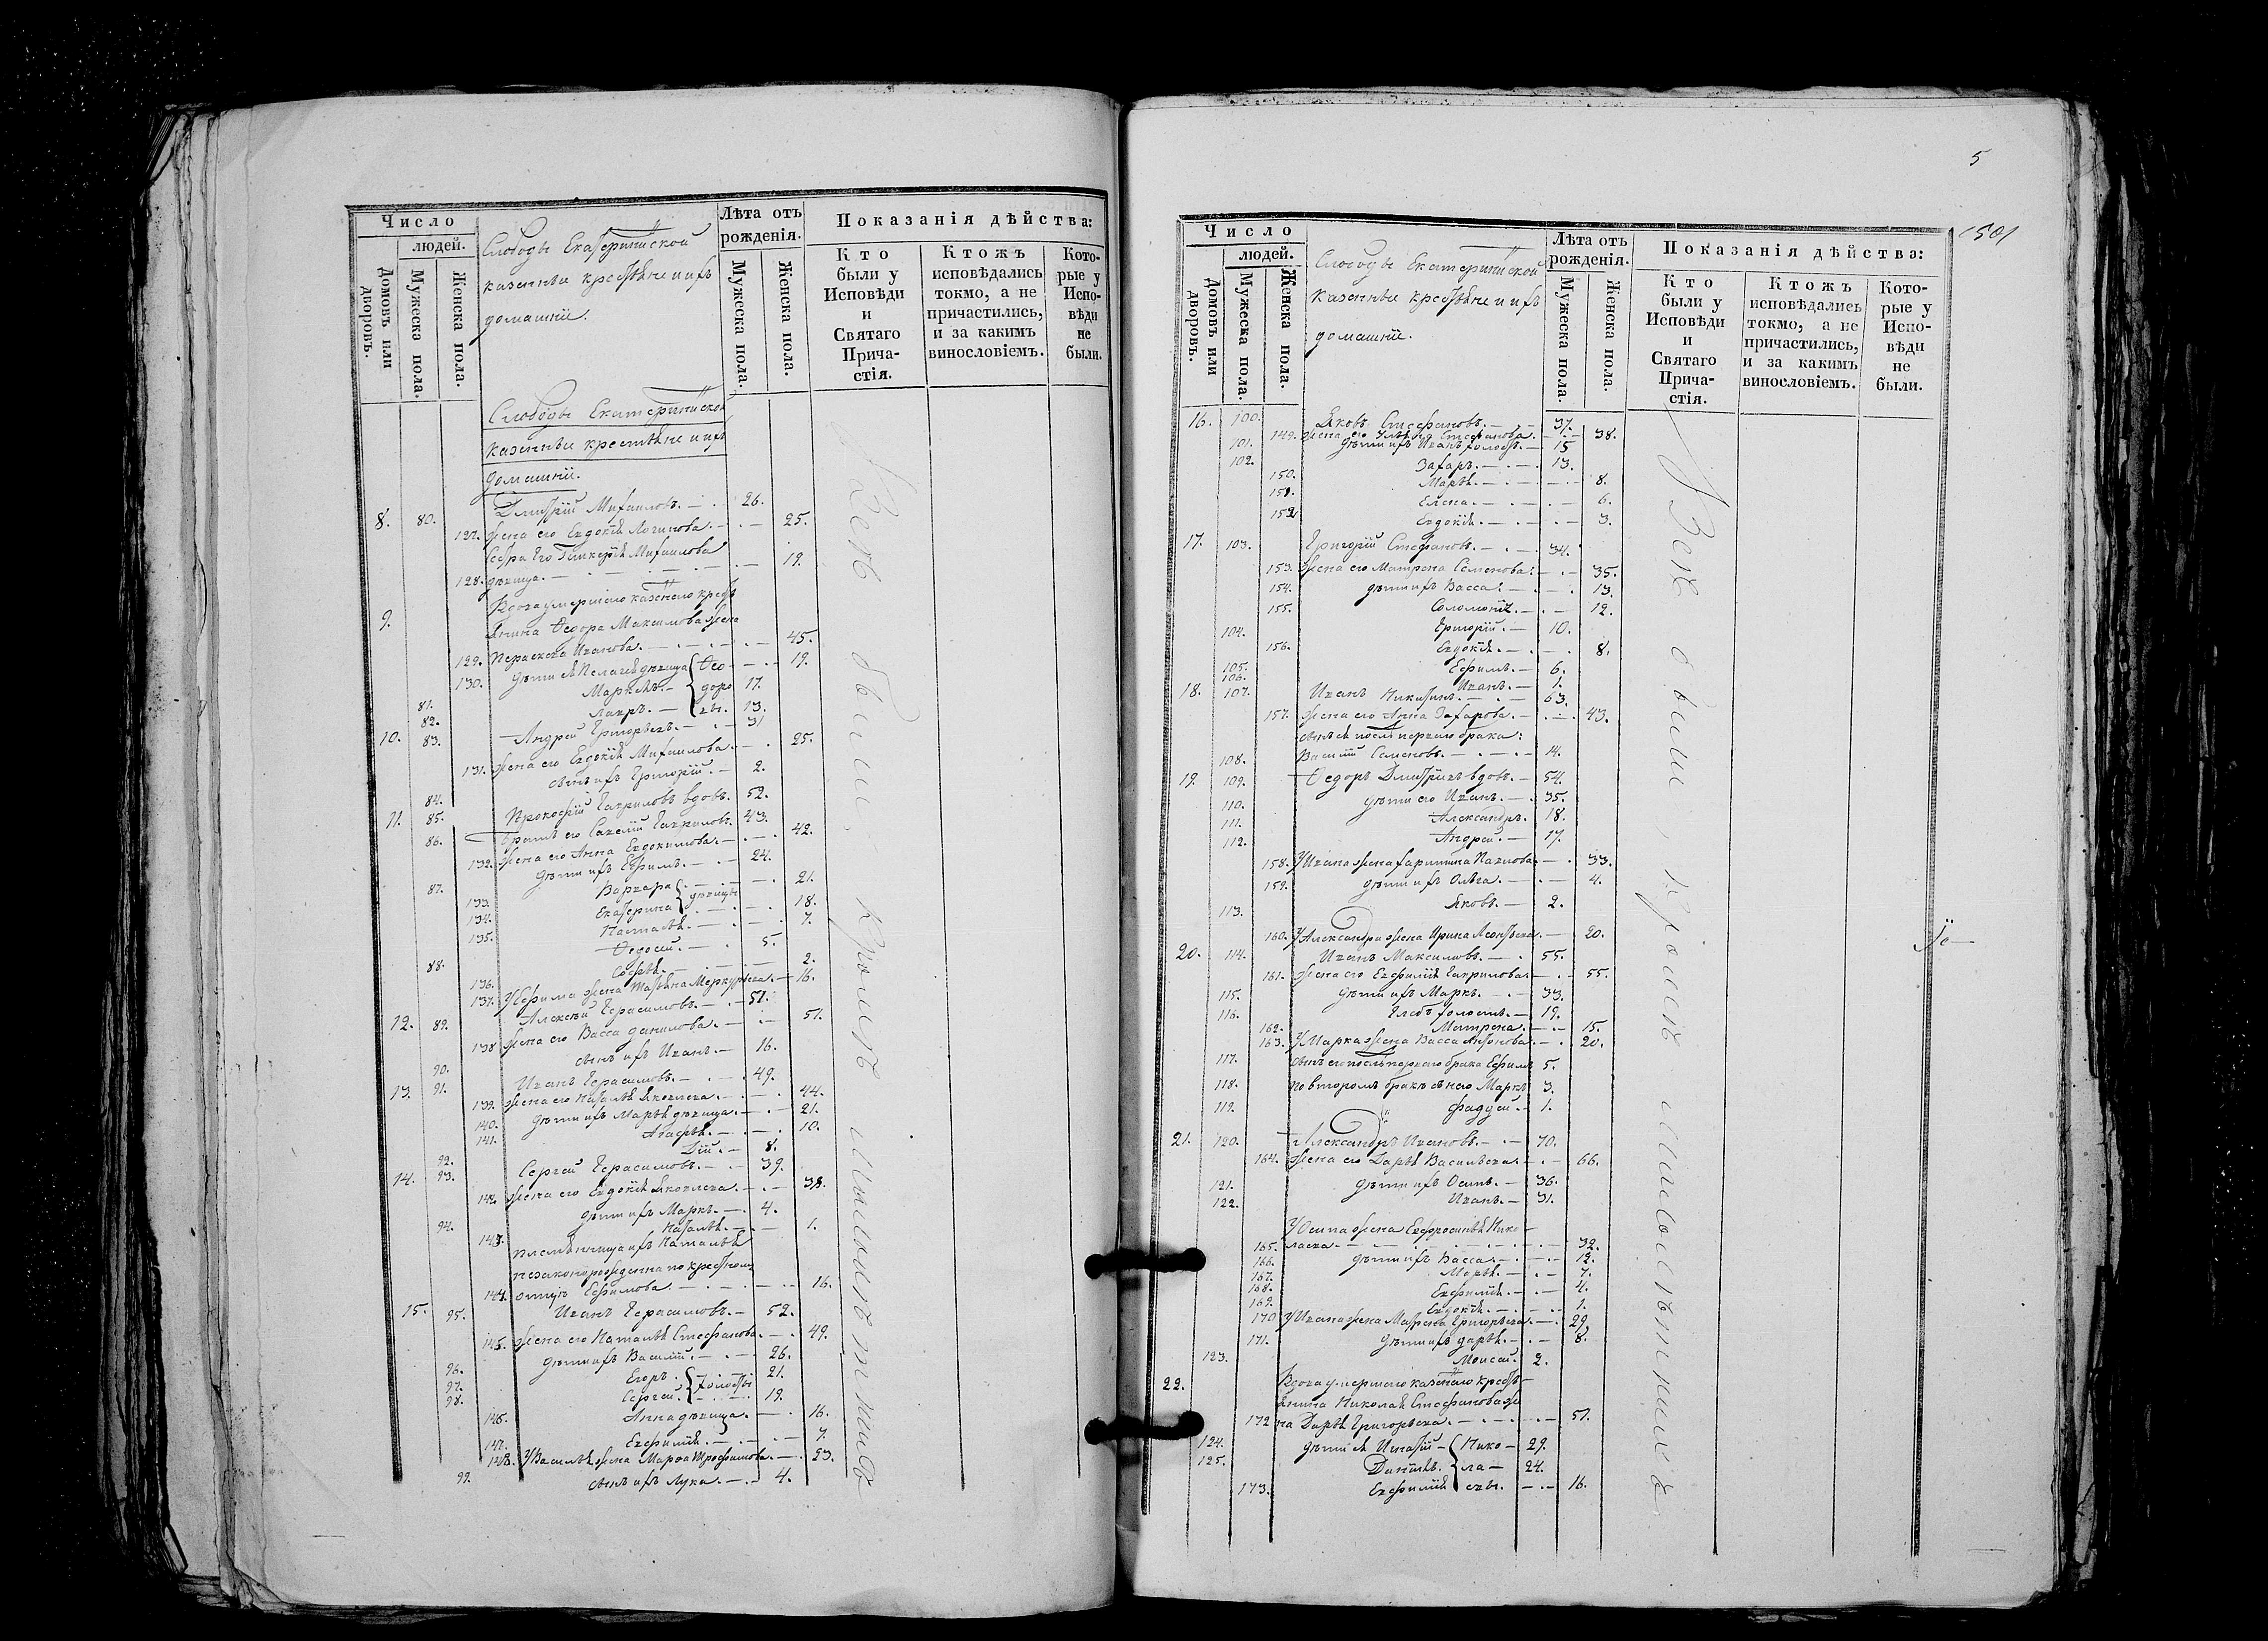 Число
людей.
Домовъ или дворовъ.
Мужеска пола.
Женска пола.
Слободы Екатерининской
казенные крестьяне и ихъ
домашніе.
Лѣта отъ
рожденія.
Мужеска пола.
Женска пола.
Показанія дѣйства:
Кто
были у
Исповѣди
и
Святаго
Прича-
стія.
Ктожъ
исповѣдались
токмо, а не
причастились,
и за какимъ
винословіемъ.
Кото-
рые у
Испо-
вѣди
не
были.
Слободы Екатерининской
казенные крестьяне и ихъ
домашніе.
8. 80. Димитрій Михаиловъ. 26.
127. Жена его Евдокія Логинова. 25.
Сестра его Михаилова
128. дѣвица. 19.
9. Вдова умершаго казеннаго кресть
янина Ѳеодора Максимова жена
129. Параскева Иванова. 45.
130. дѣти ея Пелагея дѣвица Ѳео- 19.
81. Маркелъ. доро 17.
82. Лавръ. вы. 13.
10. 83. Андрей Григорьевъ. 31
131. Жена его Евдокія Михаилова. 25.
84. сынъ ихъ Григорій. 2.
11. 85. Прокофій Гавриловъ вдовъ. 52.
86. Братъ его Савелій Гавриловъ. 43.
132. Жена его Анна Евдокимова. 42.
87. дѣти ихъ Ефимъ. 24.
133. Варвара дѣвицы 21.
134. Екатерина 18.
135. Наталья. 7.
88. Ѳедосей. 5.
136. Софья. 2.
137. У Ефима жена Татьяна Меркурьева. 16.
12. 89. Алексѣй Герасимовъ. 51.
138 Жена его Васса Данилова. 51.
90. сынъ ихъ Иванъ. 16.
13. 91. Иванъ Герасимовъ. 49.
139. Жена его Наталья Яковлева. 44.
140. дѣти ихъ Марья дѣвица. 21.
141. Агафья. 10.
92. Дій. 8.
14. 93. Сергей Герасимовъ. 39.
142. Жена его Евдокія Яковлева. 38.
94. дѣти ихъ Маркъ. 4.
143. Наталья. 1.
племянница ихъ Наталья
незаконорожденна по крестному
144. отцу Ефимова. 16.
15. 95. Иванъ Герасимовъ. 52.
145. Жена его Наталья Стефанова. 49.
96. дѣти ихъ Василій. 26.
97. Егоръ. холосты 21.
98. Сергей. 19.
146. Анна дѣвица. 16.
147. Евфимія. 7.
148. У Василья жена Марфа Трофимова. 23.
99. сынъ ихъ Лука. 4.
Всѣ были, кромѣ малолѣтнихъ
5
1501
Число
людей.
Домовъ или дворовъ.
Мужеска пола.
Женска пола.
Слободы Екатерининской
казенные крестьяне и ихъ
домашніе.
Лѣта отъ
рожденія.
Мужеска пола.
Женска пола.
Показанія дѣйства:
Кто
были у
Исповѣди
и
Святаго
Прича-
стія.
Ктожъ
исповѣдались
токмо, а не
причастились,
и за какимъ
винословіемъ.
Кото-
рые у
Испо-
вѣди
не
были.
16. 100. Яковъ Стефановъ. 37.
149. Жена его Стефанова. 38.
101. дѣти ихъ Иванъ холостъ. 15
102. Захаръ. 13.
150. Марья. 8.
151. Елена. 6.
152 Евдокія. 3.
17. 103. Григорій Стефановъ. 34.
153. Жена его Матрена Семенова. 35.
154. дѣти ихъ Васса. 13.
155. Соломонія. 12.
104. Григорій. 10.
156. Евдокія. 8.
105. Ефимъ. 6.
106. Иванъ. 1.
18. 107. Иванъ Никитинъ. 63.
157. Жена его Анна Захарова. 43.
сынъ ея послѣ перваго брака:
108. Василій Семеновъ. 14.
19. 109. Ѳедоръ Дмитріевъ вдовъ. 54.
110. дѣти его Иванъ. 35.
111. Александръ. 18.
112. Андрей. 17.
158. У Ивана жена Харитина Павлова. 33.
159. дѣти ихъ Ольга. 4.
113. Яковъ. 2.
160. У Александра жена Ирина Леонтьева. 20.
20. 114. Иванъ Максимовъ. 55.
161. Жена его Евфимія Гаврилова. 55.
115. дѣти ихъ Маркъ. 33.
116. Глебъ холостъ. 19.
162. Матрена. 15.
163. У Марка жена Васса Антонова. 20.
117. сынъ его послѣ перваго брака Ефимъ 5.
118. по второмъ бракѣ сынъ его Маркъ 3.
119. Фаддей. 1.
21. 120. Александръ Ивановъ. 70.
164. Жена его Дарья Васильева. 66.
121. дѣти ихъ Осипъ. 36.
122. Иванъ. 31.
У Осипа жена Евфросинья Нико
165. лаева. 32.
166. дѣти ихъ Васса. 12.
167. Марья. 7.
168. Евфимія. 4.
169. Евдокія. 1.
170 У Ивана жена Матрена Григорьева. 29.
171. дѣти ихъ Дарья. 8.
123. Моисей. 2.
22. Вдова умершаго казеннаго кресть-
янина Николая Стефанова же
172 на Дарья Григорьева. 51.
124. дѣти ея Игнатій Нико 29.
125. Даніилъ. ла 24.
173. Евфимія евы. 16.
Всѣ были, кромѣ малолѣтнихъ